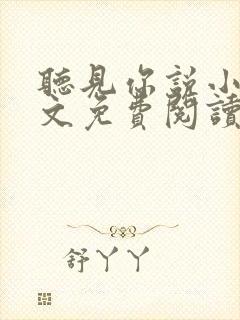 聽見你説小
文免費閱讀
舒丫丫